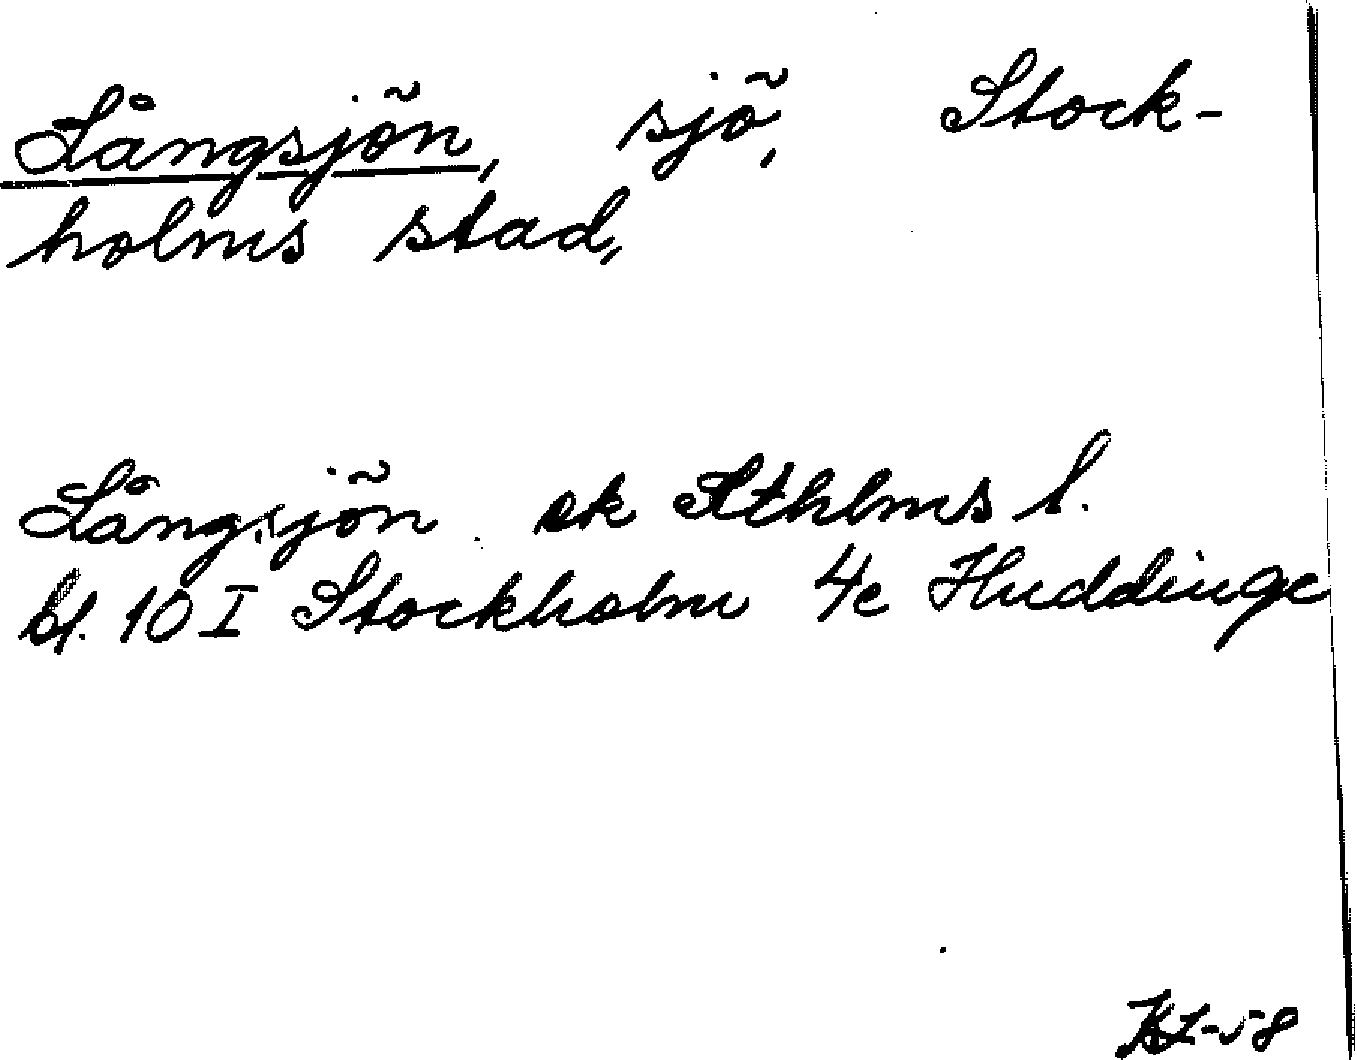 Långsjön, sjö, Stock-
holms stad,
Långsjön ek Sthlms l.
bl. 10 I Stockholm 4c Huddinge
-58